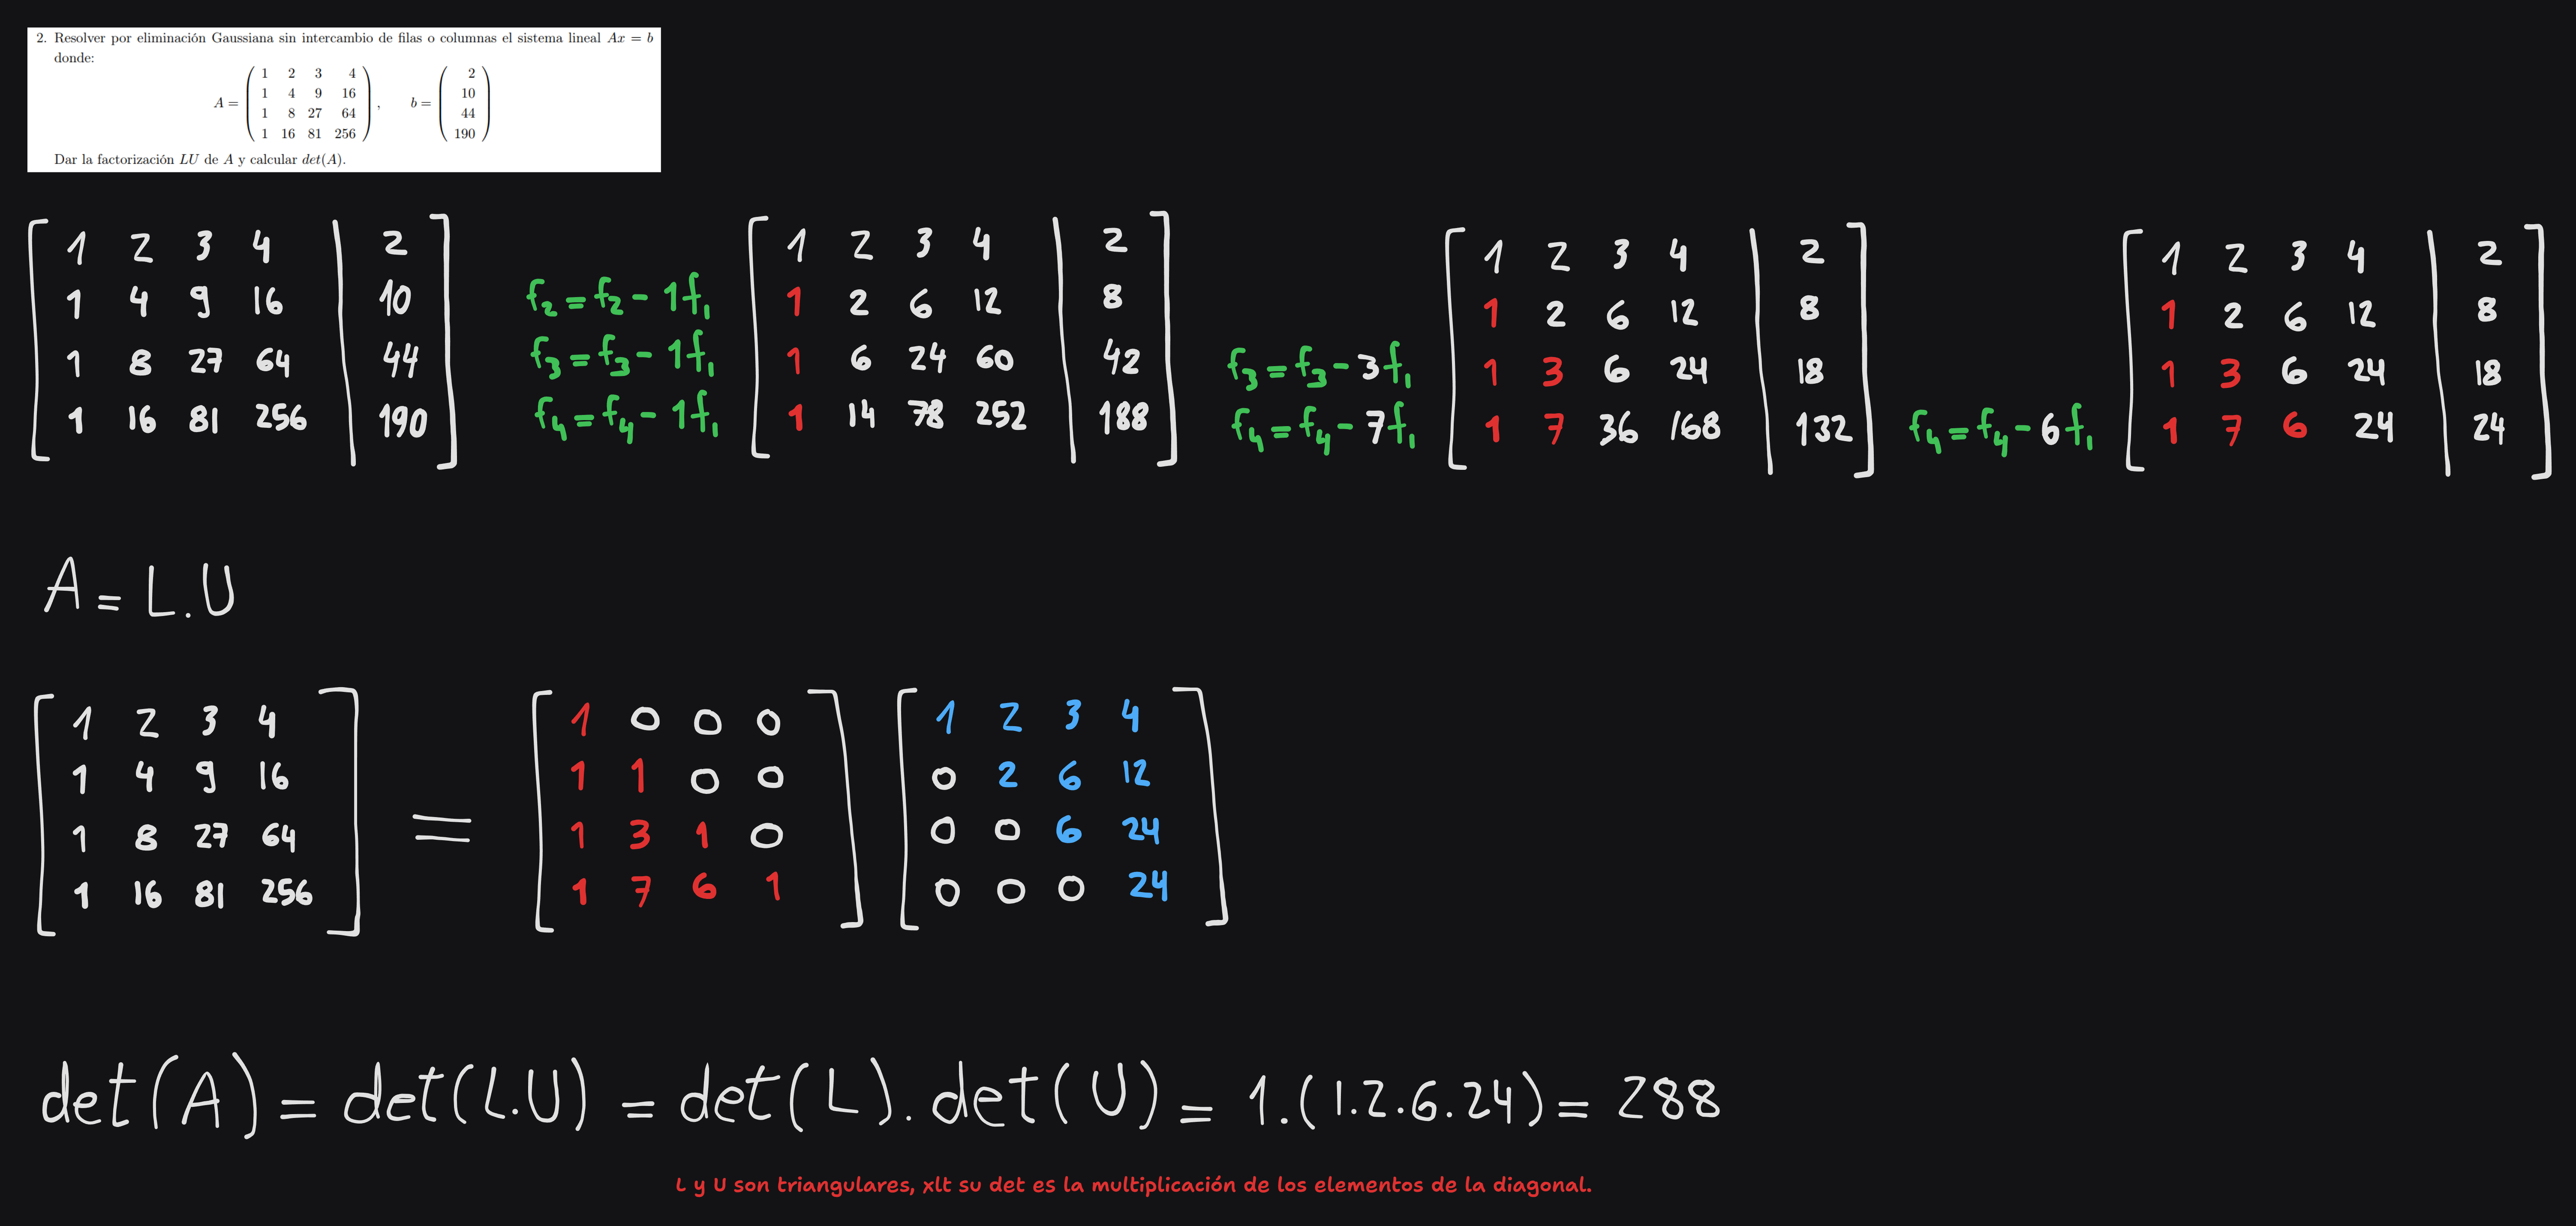 2. Resolver por eliminación Gaussiana sin intercambio de filas o columnas el sistema lineal Ax = b
donde:
A = ( 1 2 3 4 ; 1 4 9 16 ; 1 8 27 64 ; 1 16 81 256 ), b = ( 2 ; 10 ; 44 ; 190 )
Dar la factorización LU de A y calcular det(A).
1 2 3 4 | 2
1 4 9 16 | 10
1 8 27 64 | 44
1 16 81 256 | 190
f₂ = f₂ - 1f₁
f₃ = f₃ - 1f₁
f₄ = f₄ - 1f₁
1 2 3 4 | 2
1 2 6 12 | 8
1 6 24 60 | 42
1 14 78 252 | 188
f₃ = f₃ - 3f₁
f₄ = f₄ - 7f₁
1 2 3 4 | 2
1 2 6 12 | 8
1 3 6 24 | 18
1 7 36 168 | 132
f₄ = f₄ - 6f₁
1 2 3 4 | 2
1 2 6 12 | 8
1 3 6 24 | 18
1 7 6 24 | 24
A = L.U
1 2 3 4
1 4 9 16
1 8 27 64
1 16 81 256
=
1 0 0 0
1 1 0 0
1 3 1 0
1 7 6 1
1 2 3 4
0 2 6 12
0 0 6 24
0 0 0 24
det(A) = det(L.U) = det(L).det(U) = 1.(1.2.6.24) = 288
L y U son triangulares, xlt su det es la multiplicación de los elementos de la diagonal.